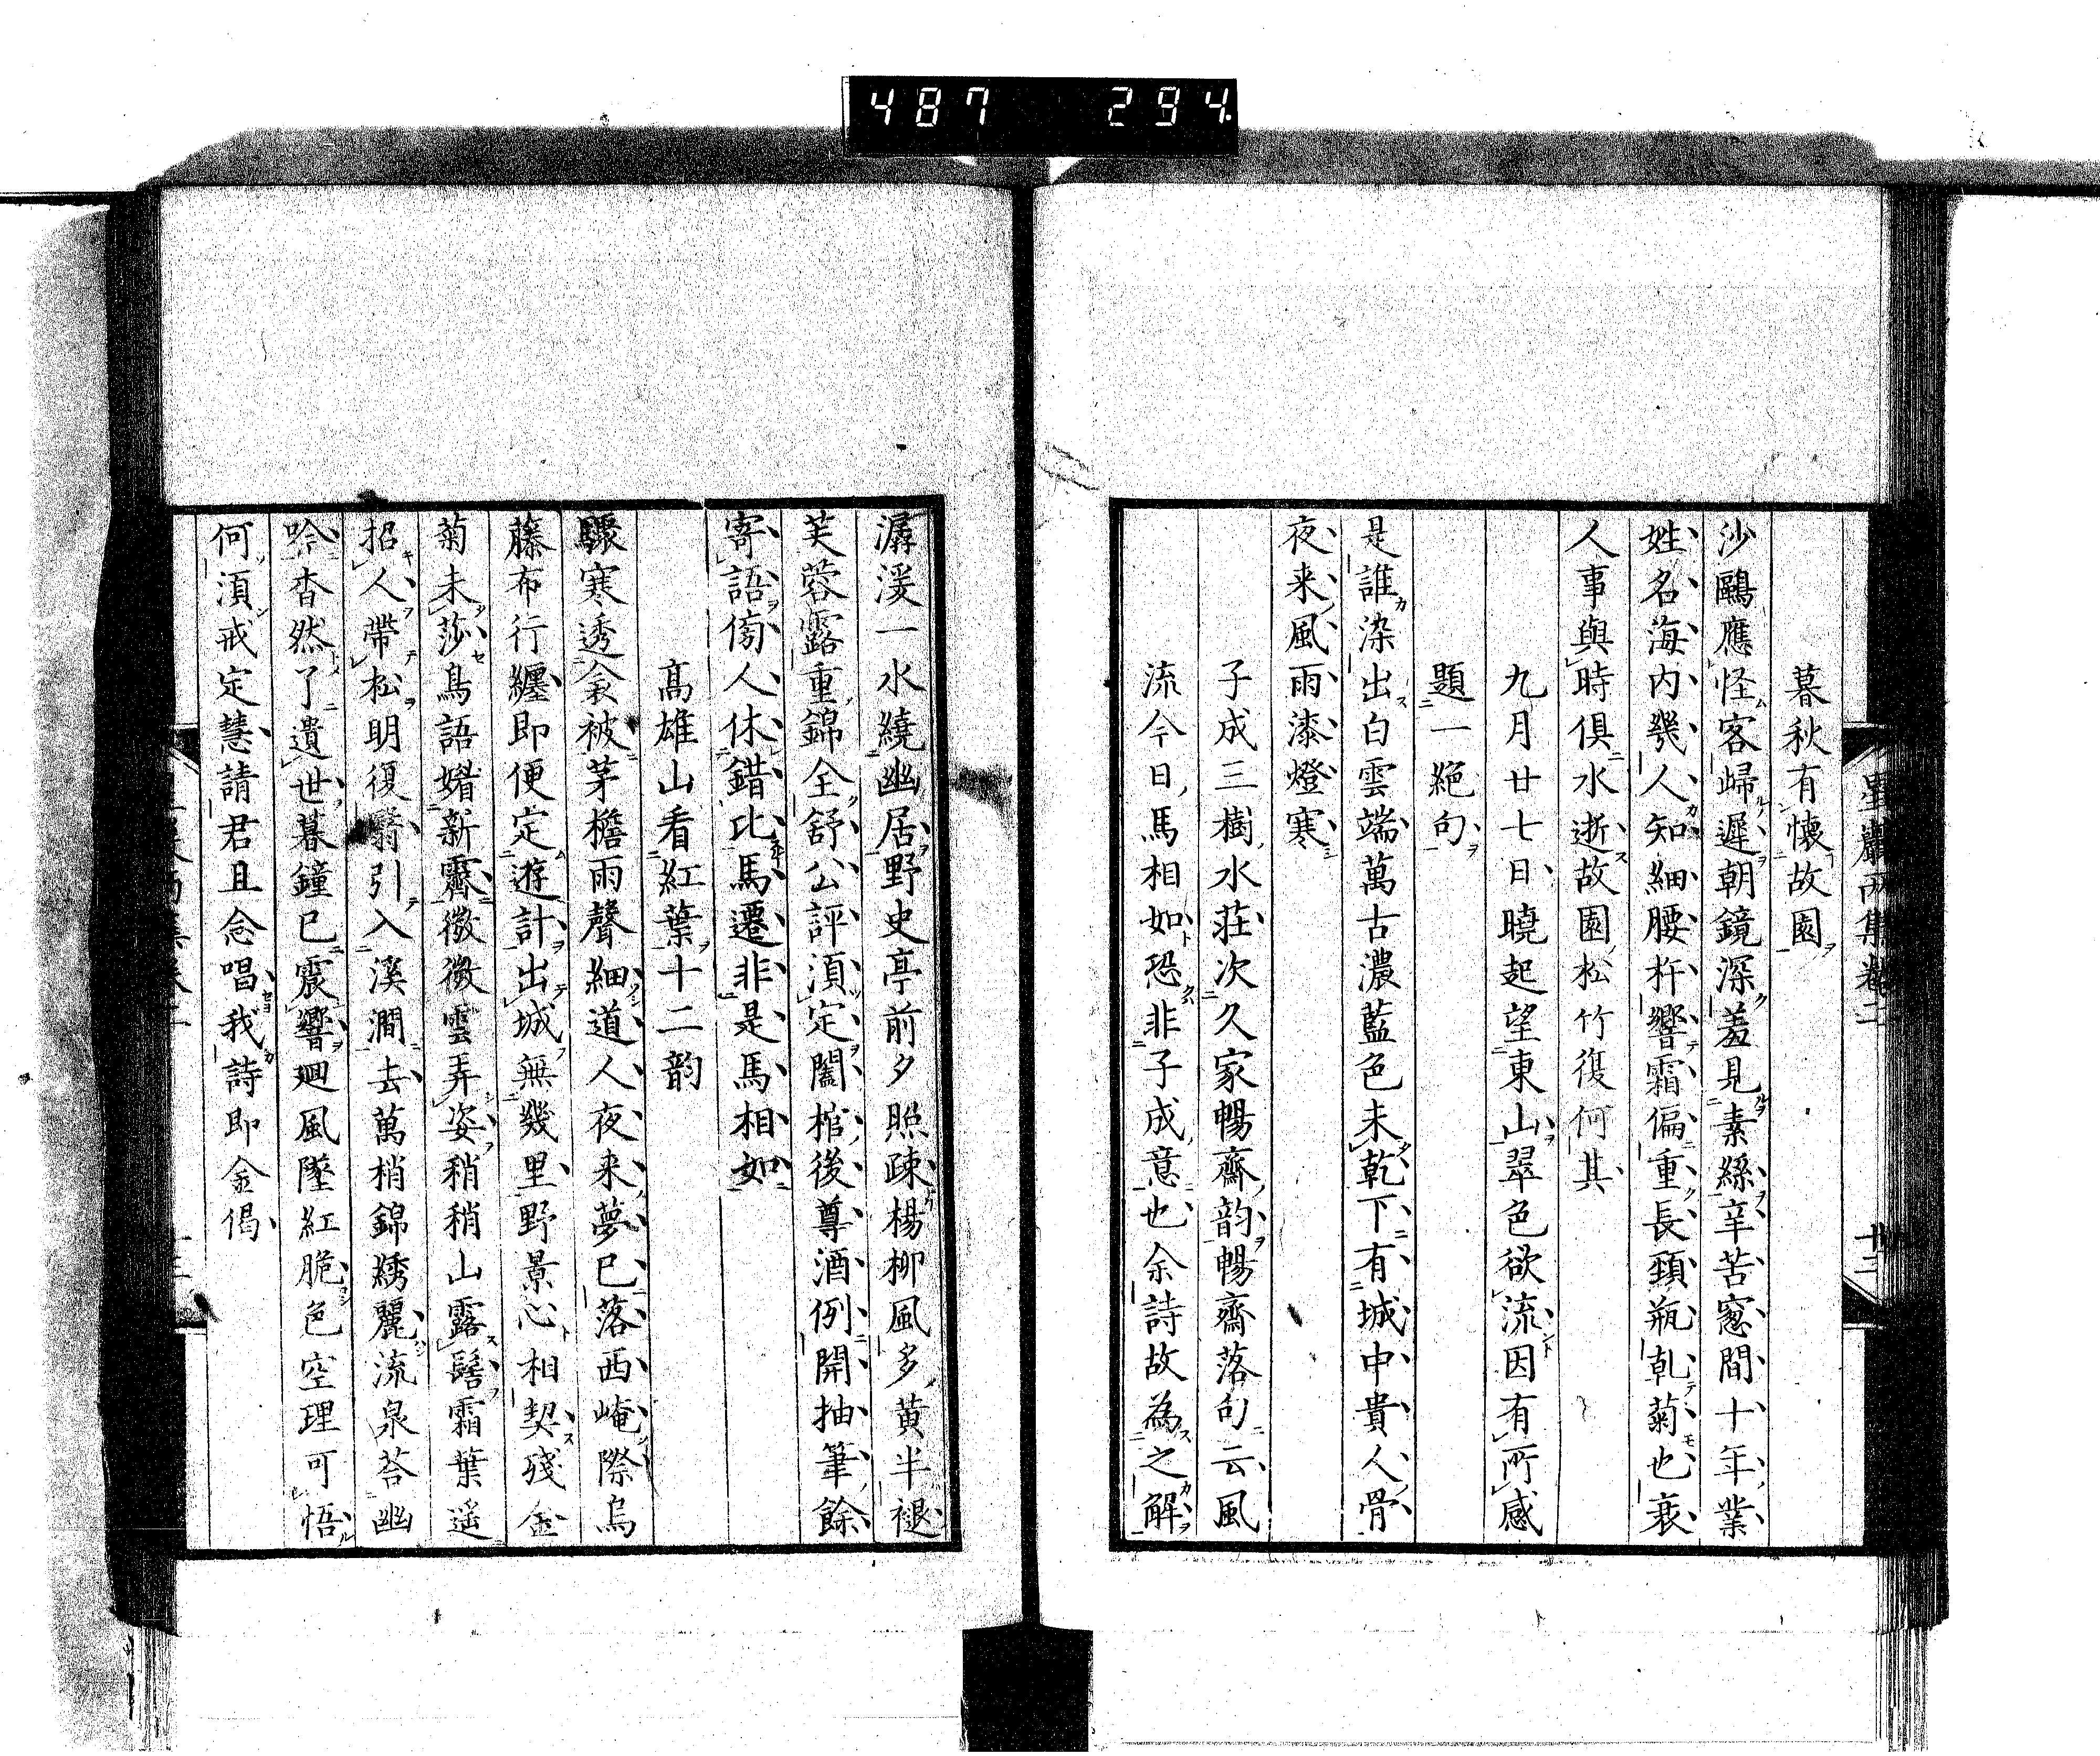 487 294
暮秋有懷故園
沙鷗應怪客歸遲朝鏡深羞見素絲辛苦窓間十年業
姓名海内幾人知細腰杵響霜偏重長頸瓶乾菊也衰
人事與時俱水逝故園松竹復何其
九月廿七日曉起望東山翠色欲流因有所感
題一絶句
是誰染出白雲端萬古濃藍色未乾下有城中貴人骨
夜来風雨漆燈寒
子成三樹水莊次久家暢齋韵暢齋落句云風
流今日馬相如恐非子成意也余詩故為之解
潺湲一水繞幽居野史亭前夕照疎楊柳風多黄半褪
芙蓉露重錦全舒公評須定闔棺後尊酒例開抽筆餘
寄語傍人休錯比馬遷非是馬相如
高雄山看紅葉十二韵
驟寒透衾被茅檐雨聲細道人夜来夢已落西崦際烏
藤布行纏即便定遊計出城無幾里野景心相契殘金
菊未莎鳥語媚新霽微微雲弄姿稍稍山露髻霜葉遥
招人帶松明復翳引入溪澗去萬梢錦綉麗流泉荅幽
唫杳然了遺世暮鐘已震響廻風墜紅脆色空理可悟
何須戒定慧請君且念唱我詩即金偈